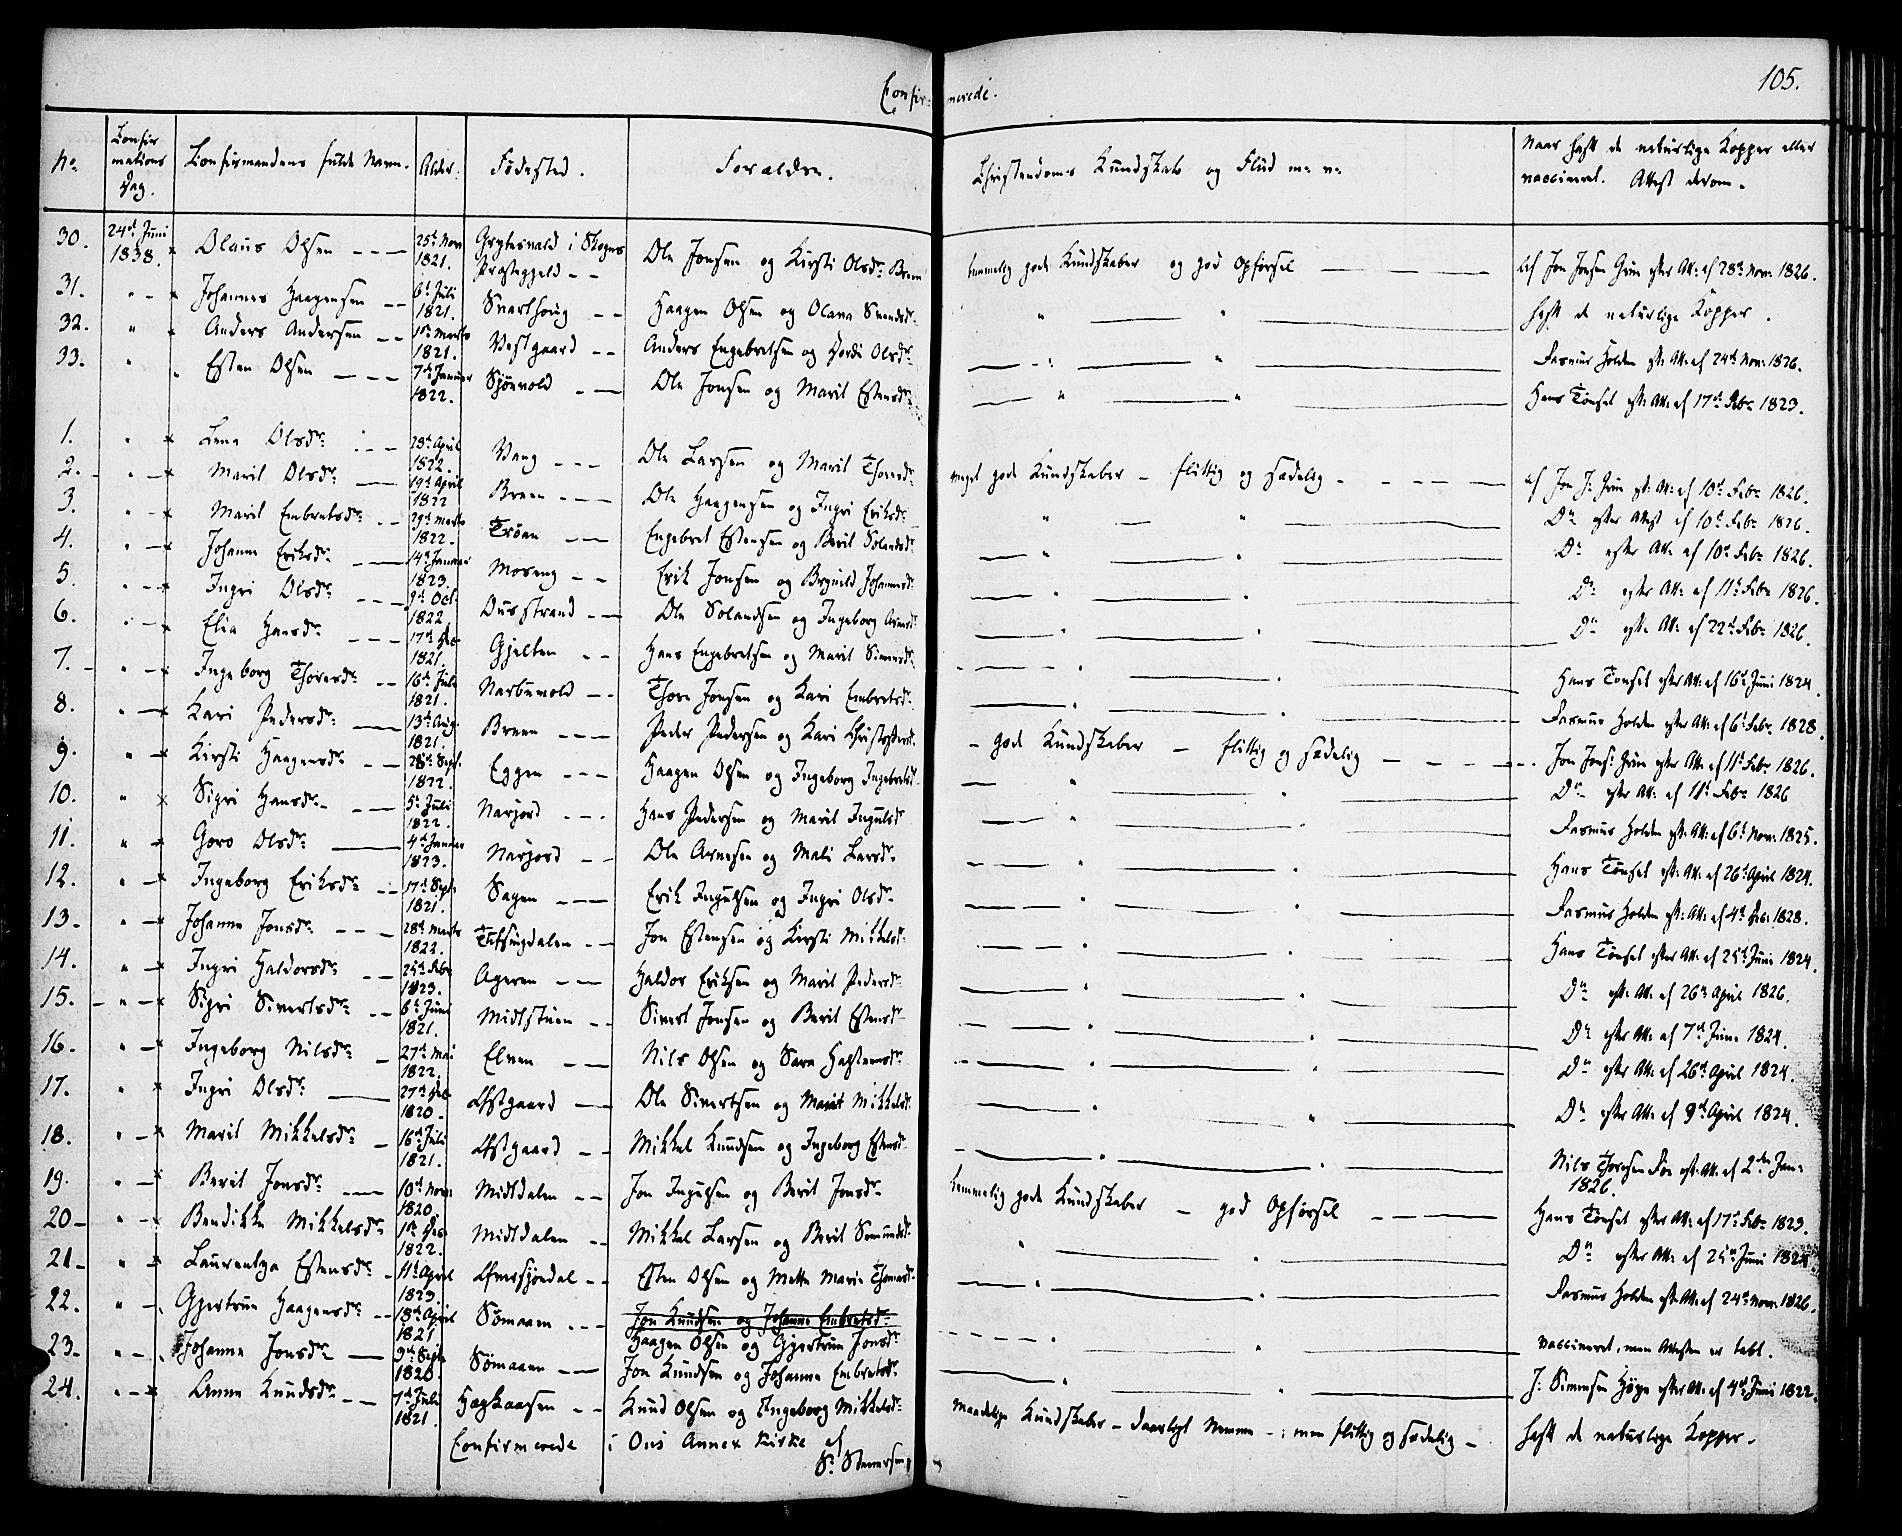 Confirmerede.
105.
No Confirmations Dag. Confirmandens fulde Navn. Alder. Fødested. Forældre. Christendoms Kundskab og Flid m: v: Naar haft de naturlige Kopper eller vaccineret. Attest derom.
30. 24de Juni 1838. Olaus Olsen 25de Nov 1821. i Skogns Præstegjeld Ole Jonsen og Kirsti Olsdr: temmelig gode Kundskaber og god Opførsel af Jon Jonsen Grue efter Att: af 28de Nov: 1826.
31. " Johannes Haagensen 6te Juli 1821. Svarthoug Haagen Olsen og Olava Svendsdr: " " haft de naturlige Kopper.
32. " Anders Andersen 1ste Marts 1821. Vestgaard Anders Engebretsen og Olsdr: " " Rasmus Holden eft: Att: af 24de Nov: 1826.
33. " Esten Olsen 7de Januar 1822. Sjøevold Ole Jonsen og Marit Estensdr: " " Hans Tønset eft: Att: af 17de Febr 1823.
1. " Lena Olsdr: 28de April 1822. Vang Ole Larsen og Marit meget gode Kundskaber - flittig og sædelig af Jon J: Grue eft: Att: af 10de Febr 1826.
2. " Marit Olsdr: 19de April 1822 Breen Ole Haagensen og Ingri Eriksdr: " " Do efter Attest af 10de Febr 1826.
3. " Marit Embretsdr: 29de Marts 1822. Trøen Engebret Estensen og Berit " " Do efter Att: af 10de Febr 1826.
4. " Johanne Eriksdr: 14de Januar 1823. Moseng Erik Jonsen og Johannesdr: " " Do efter Att: af 11te Febr 1826.
5. " Ingri Olsdr: 9de Oct: 1822 Ousstrand Ole og Ingeborg " " Do eft: Att: af 22de Febr 1826.
6. " Elia Hansdr: 17de Dec 1821. Gjelten Hans Engebretsen og Marit Simensdr: " " Hans Tønset efter Att: af 16de Juni 1824.
7. " Ingeborg Thoresdr: 16de Juli 1821. Narbuvold Thore Jonsen og Kari Embretsdr: " " Rasmus Holden efter Att: af 6te Febr 1828.
8. " Kari Pedersdr: 13de Aug: 1821. Breen Peder Pedersen og Kari gode Kundskaber - flittig og sædelig Jon Jons: Grue efter Att: af 11te Febr 1826.
9. " Kirsti Haagensdr: 28de Sept: 1822. Eggen Haagen Olsen og Ingeborg " " Do efter Att: af 11te Febr 1826
10. " Sigri Hansdr: 5te Juli 1822. Narjord Hans Pedersen og Marit " " Rasmus Holden eft: Att: af 6te Nov: 1825.
11. " Goro Olsdr: 4de Januar 1823. Narjord Ole Arnesen og Mali Larsdr: " " Hans Tønset eft: Att: af 26de April 1824.
12. " Ingeborg Eriksdr: 17de Sept: 1821. Sagen Erik Ingulsen og Ingri Olsdr: " " Rasmus Holden eft: Att: af 4de 1828.
13. " Johanne Jonsdr: 28de Marts 1822. Jon Estensen og Kirsti Mikkelsdr: " " Hans Tønset efter Att: af 25de Juni 1824.
14. " Ingri Haldorsdr: 25de Febr 1823. Ageren Haldor Eriksen og Marit Pedersdr: " " Do eft: Att: af 26de April 1826.
15. " Sigri Sivertsdr: 6te Juni 1821. Midtstuen Sivert Jonsen og Berit Estensdr: " " Do efter Att: af 7de Juni 1824.
16. " Ingeborg Nilsdr: 27de Mai 1822. Elven Nils Olsen og Sara " " Do efter Att: af 26de April 1824.
17. " Ingri Olsdr: 27de Dec 1820. Østgaard Ole Sivertsen og Marit Mikkelsdr: " " Do efter Att: af 9de April 1824.
18. " Marit Mikkelsdr: 16de Juli 1821. Østgaard Mikkel Knudsen og Ingeborg Estensdr: " " Nils Thoresen eft: Att: af 2den Jan: 1826.
19. " Berit Jonsdr: 10de Nov: 1820. Midtdalen Jon Ingulsen og Berit Jonsdr: temmelig gode Kundskaber - god Opførsel Hans Tønset efter Att: af 17de Febr 1823.
20 " Bendikke Mikkelsdr: 1ste Dec 1822. Midtdalen Mikkel Larsen og Berit " " Do efter Att: af 25de Juni 1824.
21 " Estensdr: 11te April 1823 Esten Olsen og Mette Marie Thomasdr: " " Rasmus Holden eft: Att: af 24de Nov: 1826.
22. " Gjertrue Haagensdr: 18de April 1821. Sømaaen Jon Knudsen og Johanne Embretsdr:
Haagen Olsen og Gjertrue Jonsdr: " " vaccineret, men Attesten er tabt.
23 " Johanne Jonsdr: 9de Septr 1820. Sømaaen Jon Knudsen og Johanne Embretsdr: " " J: Simensen Høye efter Att: af 4de Juni 1822.
24. " Anne Knudsdr: 7de Juli 1821. Knud Olsen og Ingeborg Mikkelsdr: maadelige Kundskaber - daarligt Nemme - men flittig og sædelig - haft de naturlige Kopper.
Confirmerede i Ous Annex Kirke af
S: Stenersen